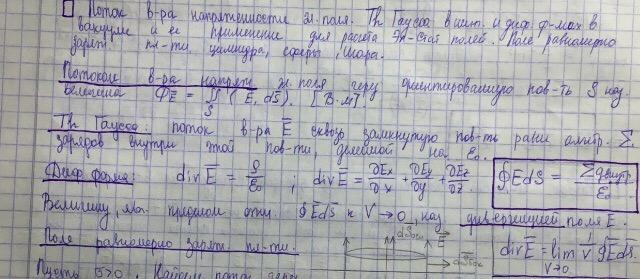 □ Поток в-ра напряженности эл. поля. Th Гаусса в инт. и диф. ф-мах в
вакууме и ее применение для расчета Эл-стат полей. Поле равномерно
заряж. пл-ти, цилиндра, сферы, шара.
Потоком в-ра напряж эл. поля через ориентированную пов-ть S наз.
величина Φ_E = ∬_S (E, dS). [В·м]
Th Гаусса: поток в-ра E сквозь замкнутую пов-ть равен алгебр. Σ
зарядов внутри этой пов-ти, деленной на ε₀.
Диф. форма: div E = ρ/ε₀ ; div E = ∂Ex/∂x + ∂Ey/∂y + ∂Ez/∂z.
∮ E dS = Σ qвнутр / ε₀
Величину, яв. пределом отн. ∮ E dS к V → 0, наз дивергенцией поля E.
Поле равномерно заряж. пл-ти.
dSбок E
div E = lim V→0 1/V ∮ E dS
Пусть σ>0. Найдем поток